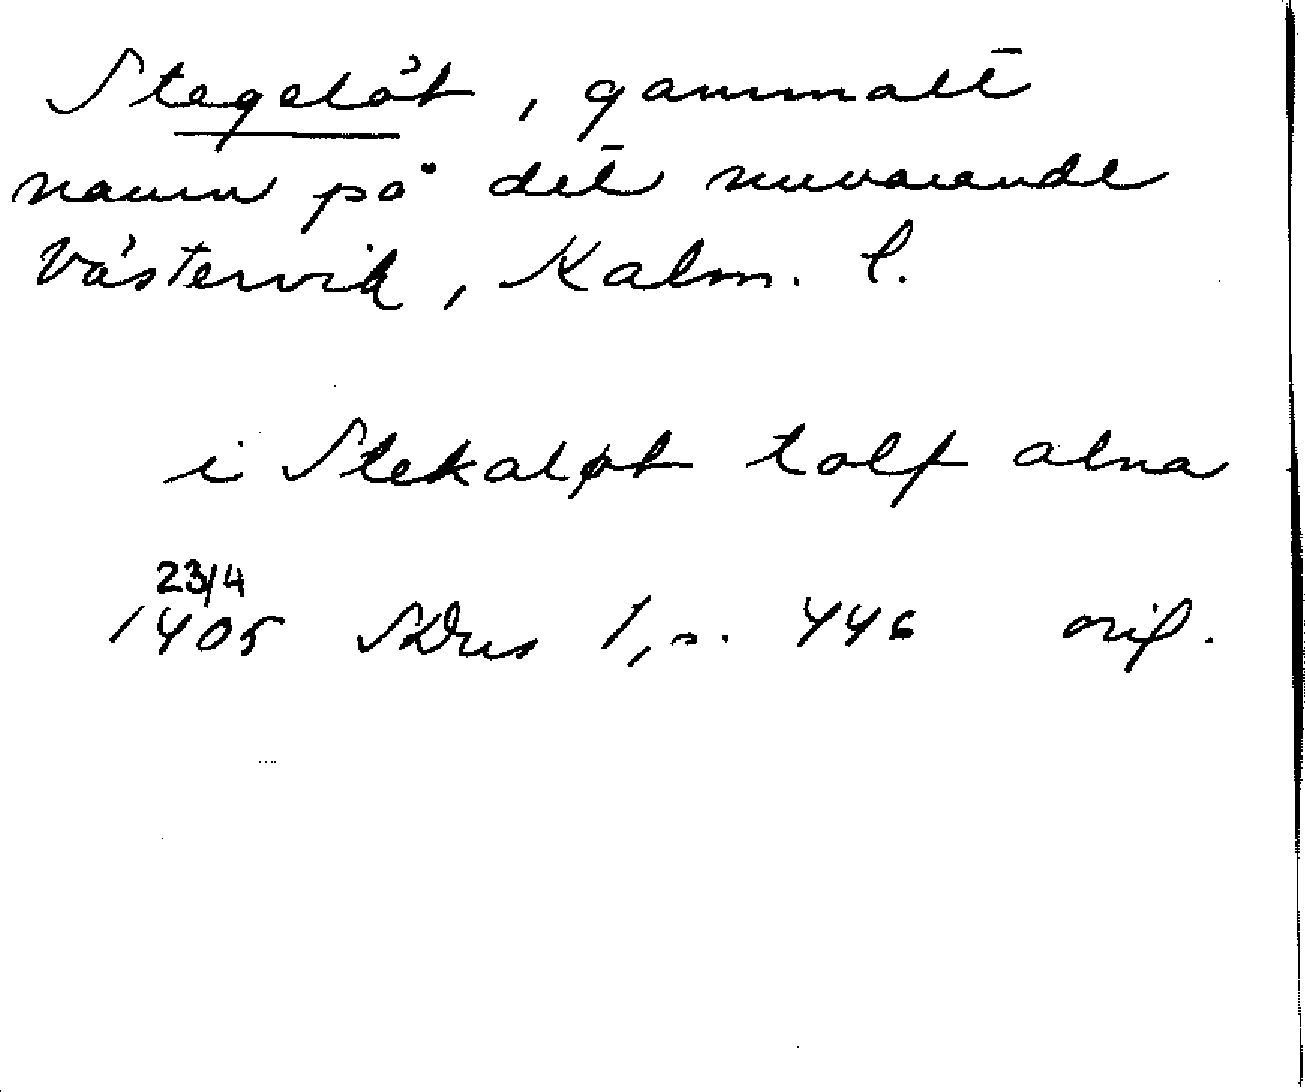 Stegelöt, gammalt
namn på det nuvarande
Västervik, Kalm. l.
i Stekaløt tolf alna
23/4
1405 SDns 1, s. 446 orig.